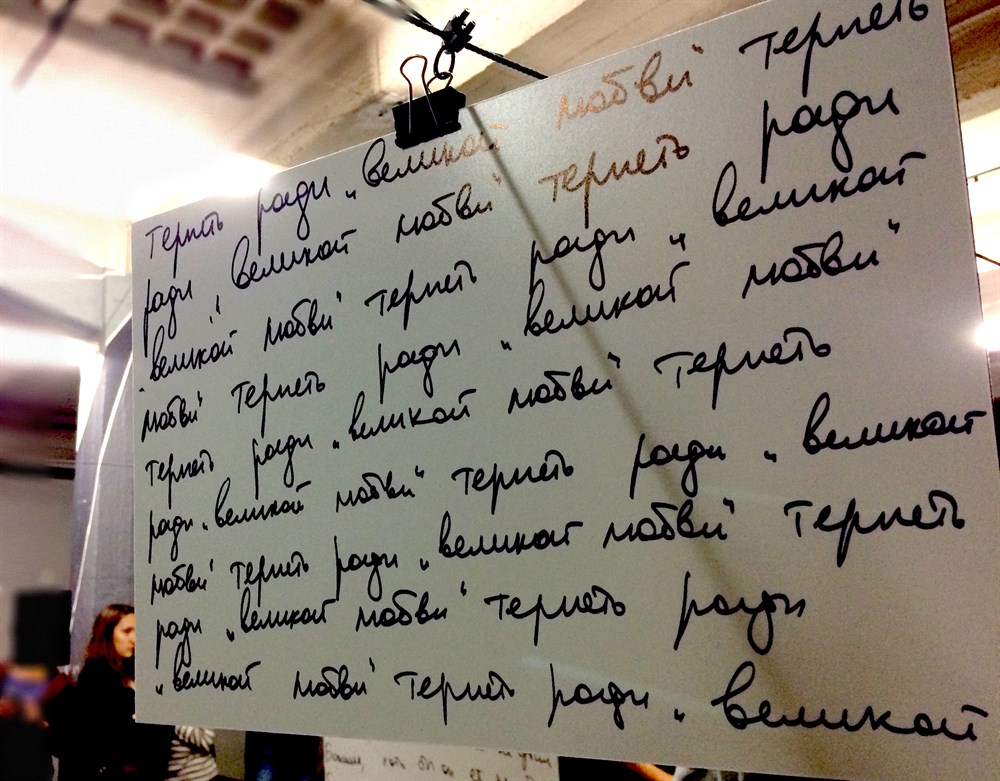 терпеть ради „великой любви“ терпеть
ради „великой любви“ терпеть ради
„великой любви“ терпеть ради „великой
любви“ терпеть ради „великой любви“
терпеть ради „великой любви“ терпеть
ради „великой любви“ терпеть ради „великой
любви“ терпеть ради „великой любви“ терпеть
ради „великой любви“ терпеть ради
„великой любви“ терпеть ради „великой